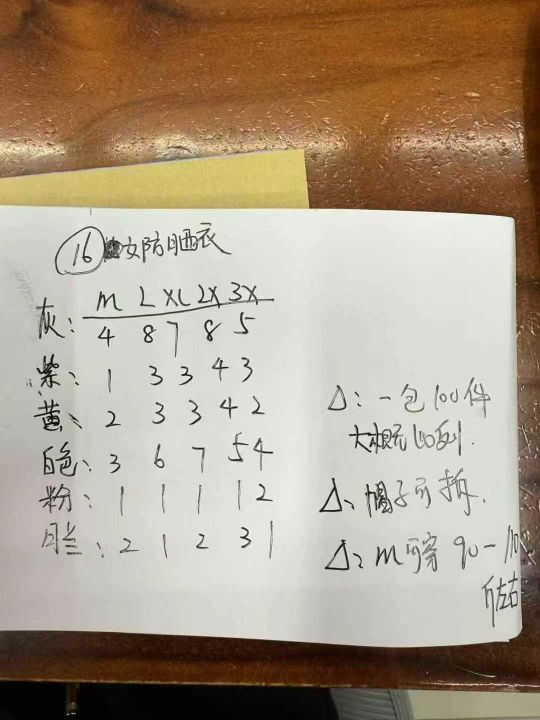 16 女防晒衣
M L XL 2X 3X
灰: 4 8 7 8 5
紫: 1 3 3 4 3
黄: 2 3 3 4 2
白色: 3 6 7 5 4
粉: 1 1 1 1 2
兰: 2 1 2 3 1
△: 一包100件
大概
△: 帽子可拆.
△: M可穿 90-
斤左右